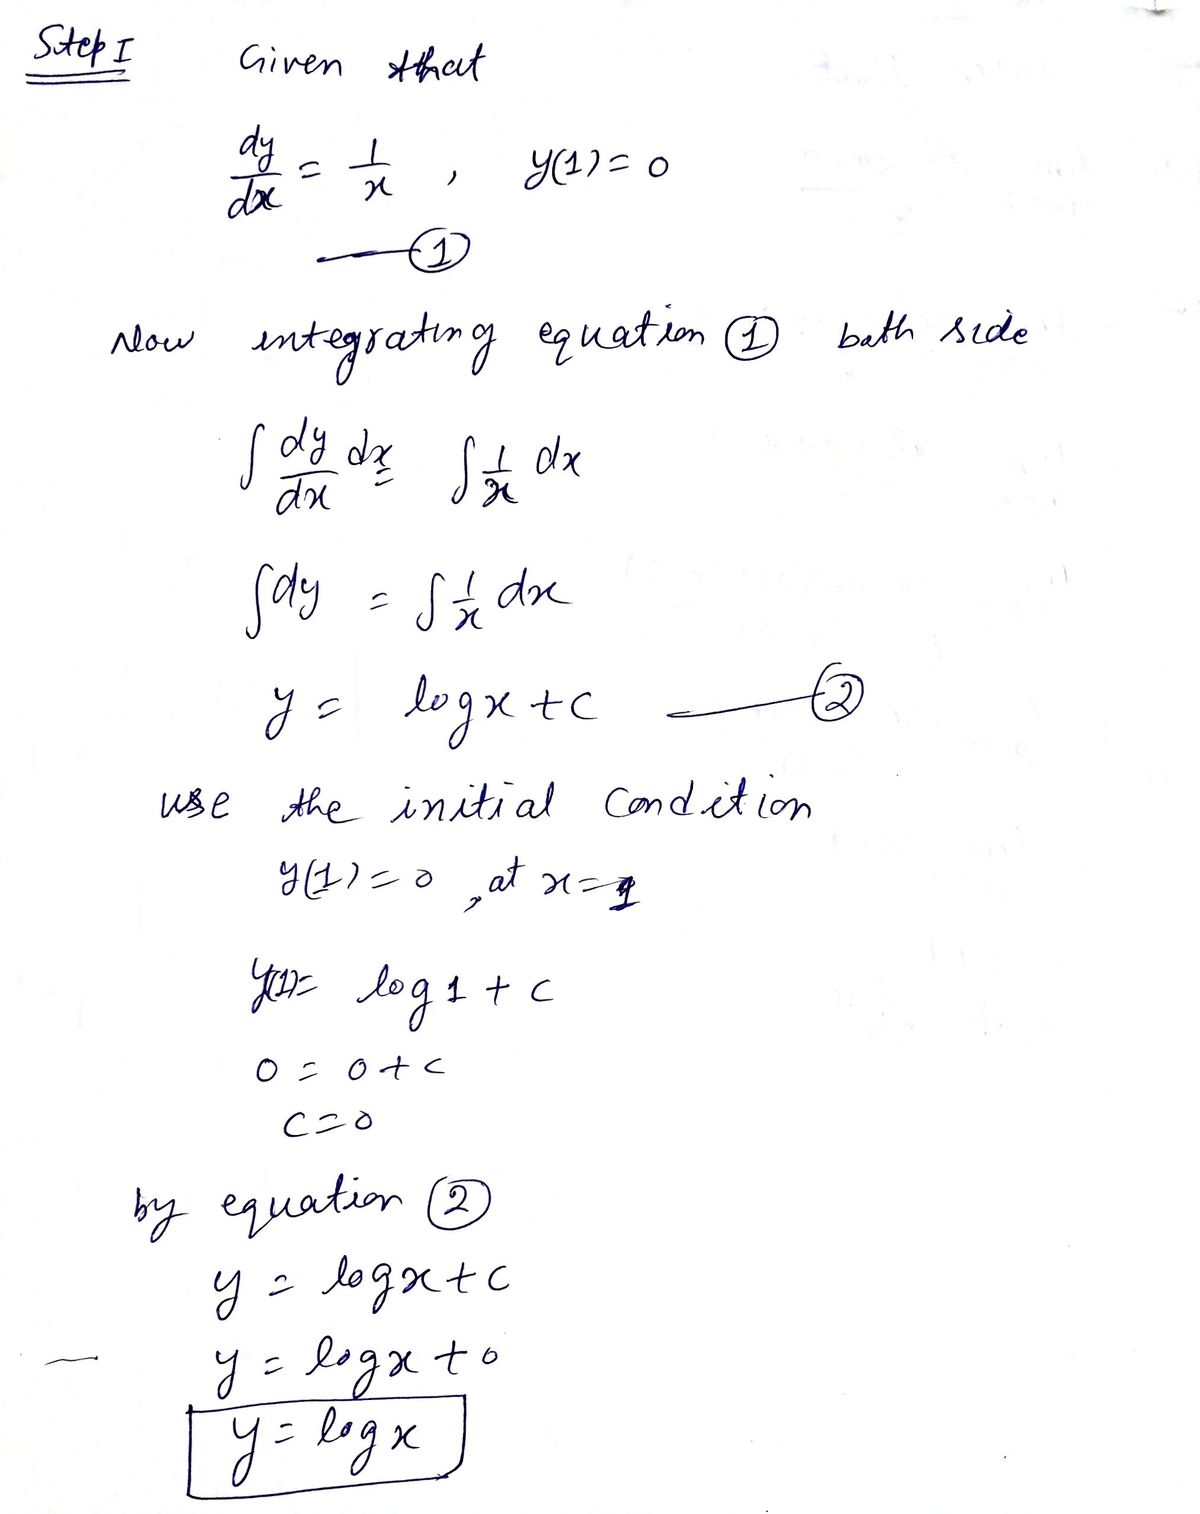 Step I Given that
dy/dx = 1/x , y(1) = 0
—①
Now integrating equation ① bath side
∫ dy/dx dx = ∫ 1/x dx
∫dy = ∫ 1/x dx
y = log x + c —②
use the initial condition
y(1) = 0 , at x = 1
y(1) = log 1 + c
0 = 0 + c
c = 0
by equation ②
y = log x + c
y = log x + 0
y = log x